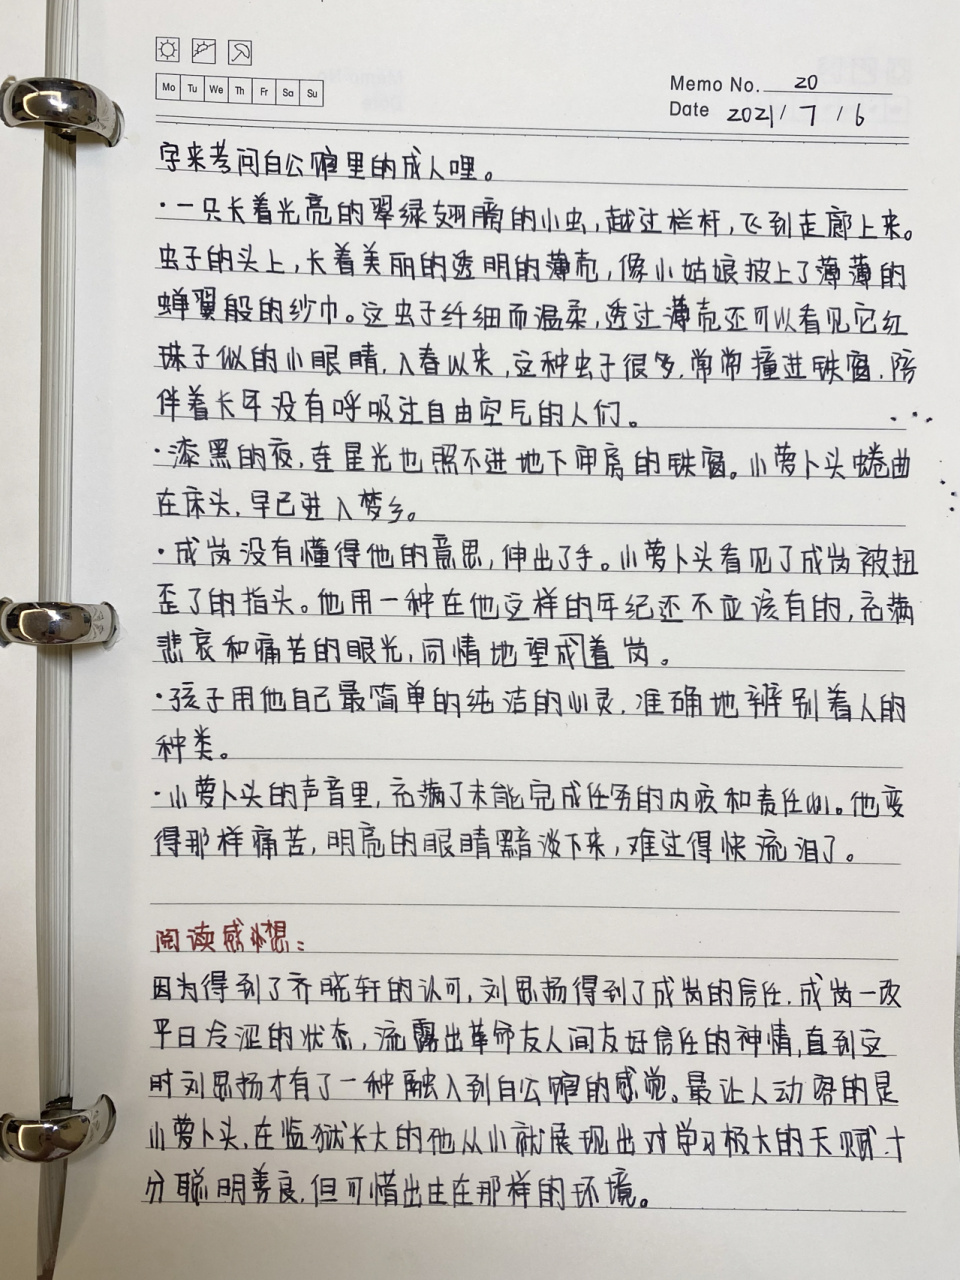 Mo Tu We Th Fr Sa Su
Memo No. 20
Date 2021 / 7 / 6
字来考问白公馆里的成人哩。
·一只长着光亮的翠绿翅膀的小虫,越过栏杆,飞到走廊上来。
虫子的头上,长着美丽的透明的薄壳,像小姑娘披上了薄薄的
蝉翼般的纱巾。这虫子纤细而温柔,透过薄壳还可以看见它红
珠子似的小眼睛,入春以来,这种虫子很多,常常撞进铁窗,陪
伴着长年没有呼吸过自由空气的人们。
·漆黑的夜,连星光也照不进地下牢房的铁窗。小萝卜头蜷曲
在床头,早已进入梦乡。
·成岗没有懂得他的意思,伸出了手。小萝卜头看见了成岗被扭
歪了的指头。他用一种在他这样的年纪还不应该有的,充满
悲哀和痛苦的眼光,同情地望成着岗。
·孩子用他自己最简单的纯洁的心灵,准确地辨别着人的
种类。
·小萝卜头的声音里,充满了未能完成任务的内疚和责任心。他变
得那样痛苦,明亮的眼睛黯淡下来,难过得快流泪了。
阅读感想:
因为得到了齐晓轩的认可,刘思扬得到了成岗的信任,成岗一改
平日冷涩的状态,流露出革命友人间友好信任的神情,直到这
时刘思扬才有了一种融入到白公馆的感觉。最让人动容的是
小萝卜头,在监狱长大的他从小就展现出对学习极大的天赋,十
分聪明善良,但可惜出生在那样的环境。